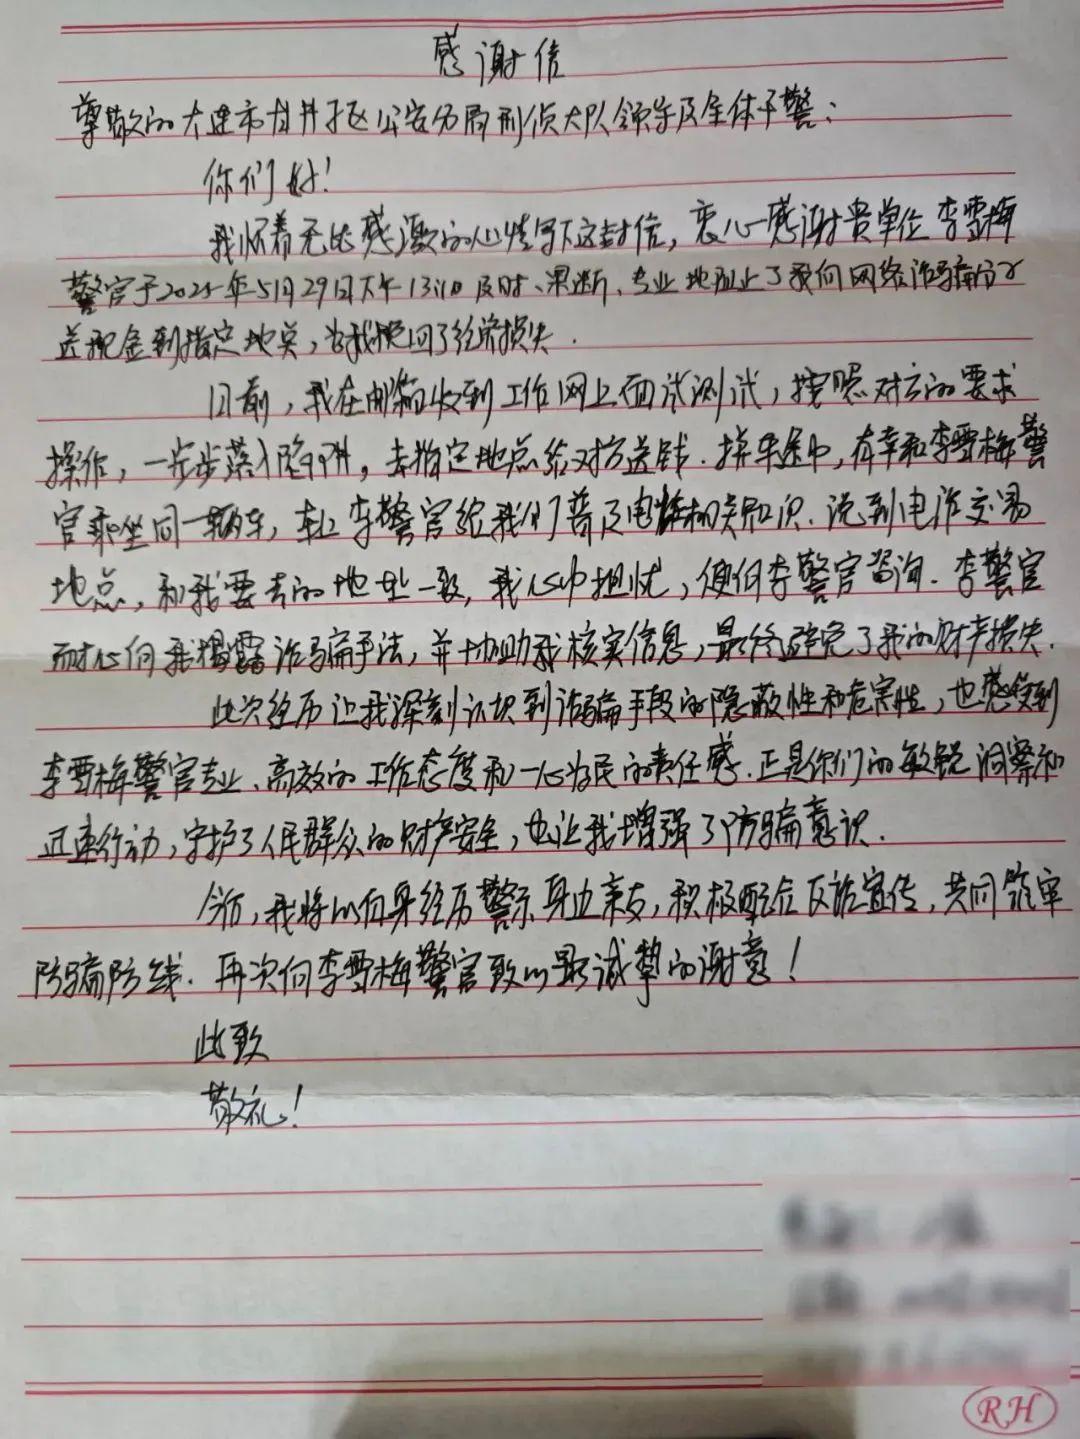 感谢信
尊敬的大连市甘井子区公安分局刑侦大队领导及全体干警：
你们好！
我怀着无比感激的心情写下这封信，衷心感谢贵单位李雪梅
警官于2025年5月29日下午13:10及时、果断、专业地阻止了我向网络诈骗分子
送现金到指定地点，为我挽回了经济损失.
日前，我在邮箱收到工作网上面试测试，按照对方的要求
操作，一步步落入陷阱，去指定地点给对方送钱.拼车途中，有幸和李雪梅警
官乘坐同一辆车，车上李警官给我们普及电诈相关知识.说到电诈交易
地点，和我要去的地址一致，我心中担忧，便向李警官咨询.李警官
耐心向我揭露诈骗手法，并协助我核实信息，最终避免了我的财产损失.
此次经历让我深刻认识到诈骗手段的隐蔽性和危害性，也感受到
李雪梅警官专业、高效的工作态度和一心为民的责任感.正是你们的敏锐洞察和
迅速行动，守护了人民群众的财产安全，也让我增强了防骗意识.
今后，我将以自身经历警示身边亲友，积极配合反诈宣传，共同筑牢
防骗防线.再次向李雪梅警官致以最诚挚的谢意！
此致
敬礼！
RH